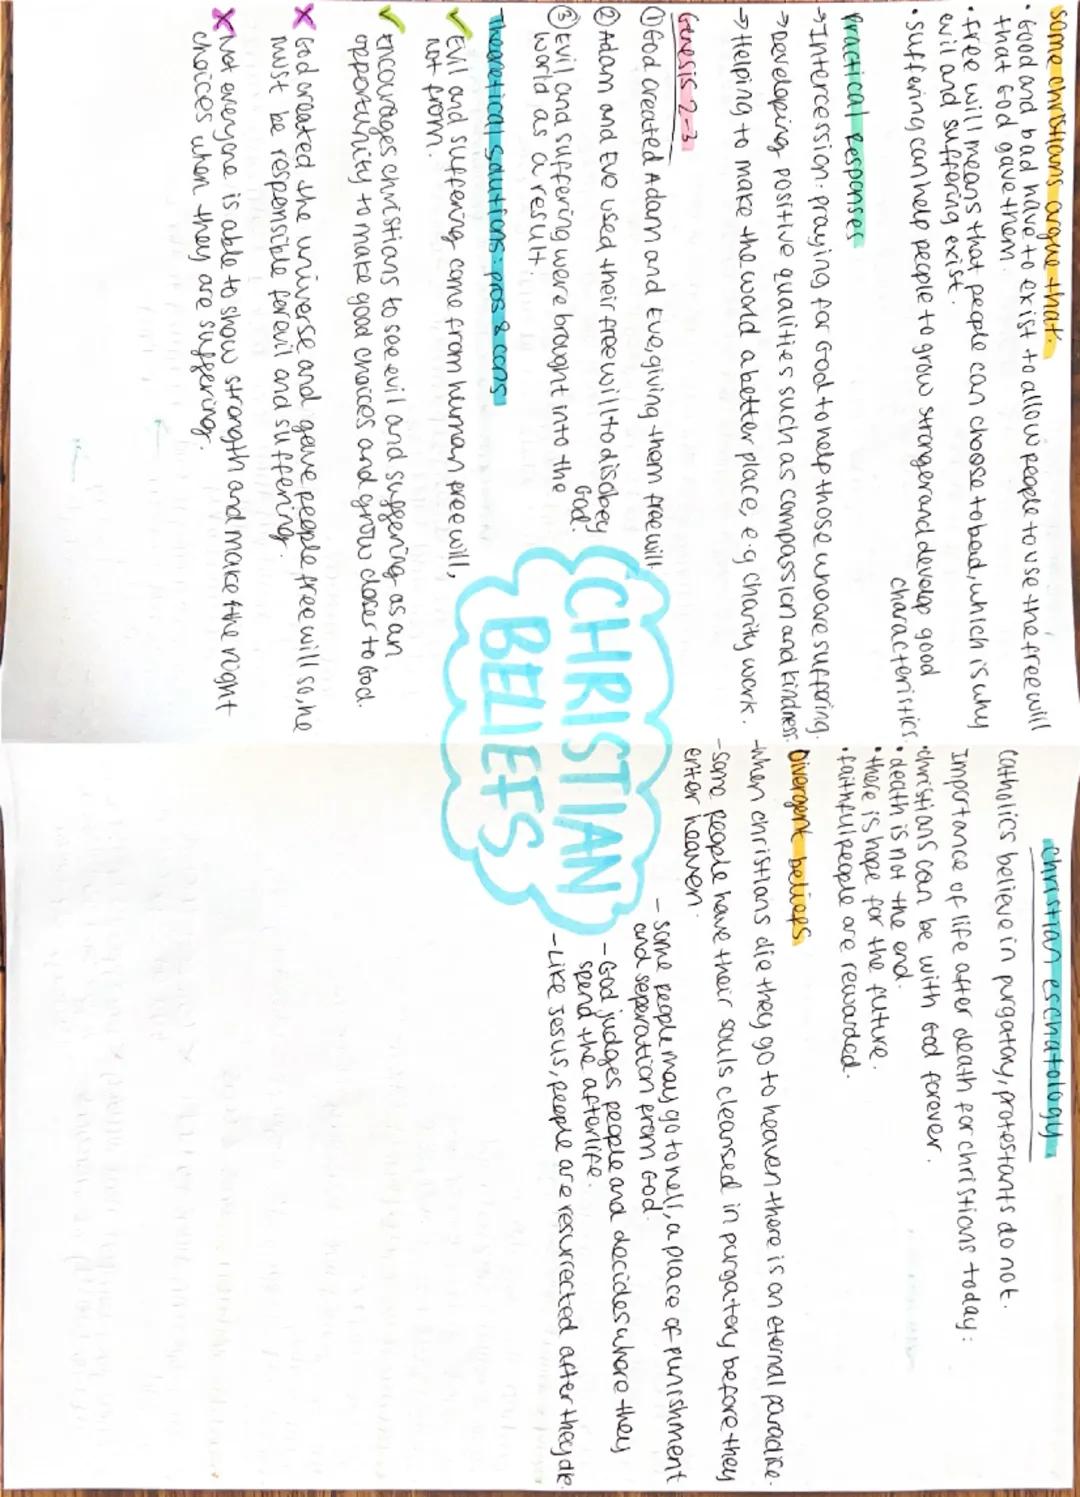 some christians argue that:
• Good and bad have to exist to allow people to use the free will
that God gave them.
• free will means that people can choose to bad, which is why
evil and suffering exist.
• suffering can help people to grow stronger and develop good
characteristics.
Practical Responses
→ Intercession: praying for God to help those who are suffering.
→ Developing positive qualities such as compassion and kindness.
→ Helping to make the world a better place, e.g charity work.
Genesis 2-3
① God created Adam and Eve, giving them free will.
② Adam and Eve used their free will to disobey
God.
③ Evil and suffering were brought into the
world as a result.
Theoretical Solutions: pros & cons
✓ Evil and suffering come from human free will,
not from.
✓ Encourages christians to see evil and suffering as an
opportunity to make good choices and grow closer to God.
X God created the universe and gave people free will so, he
must be responsible for evil and suffering.
X Not everyone is able to show strength and make the right
choices when they are suffering.
CHRISTIAN
BELIEFS
Christian eschatology
Catholics believe in purgatory, protestants do not.
Importance of life after death for christians today:
• christians can be with God forever.
• death is not the end.
• there is hope for the future.
• faithful people are rewarded.
Divergent beliefs
- When christians die they go to heaven there is an eternal paradise.
- Some people have their souls cleansed in purgatory before they
enter heaven.
- some people may go to hell, a place of punishment
and seperation from God.
- God judges people and decides where they
spend the afterlife.
- Like Jesus, people are resurrected after they die.